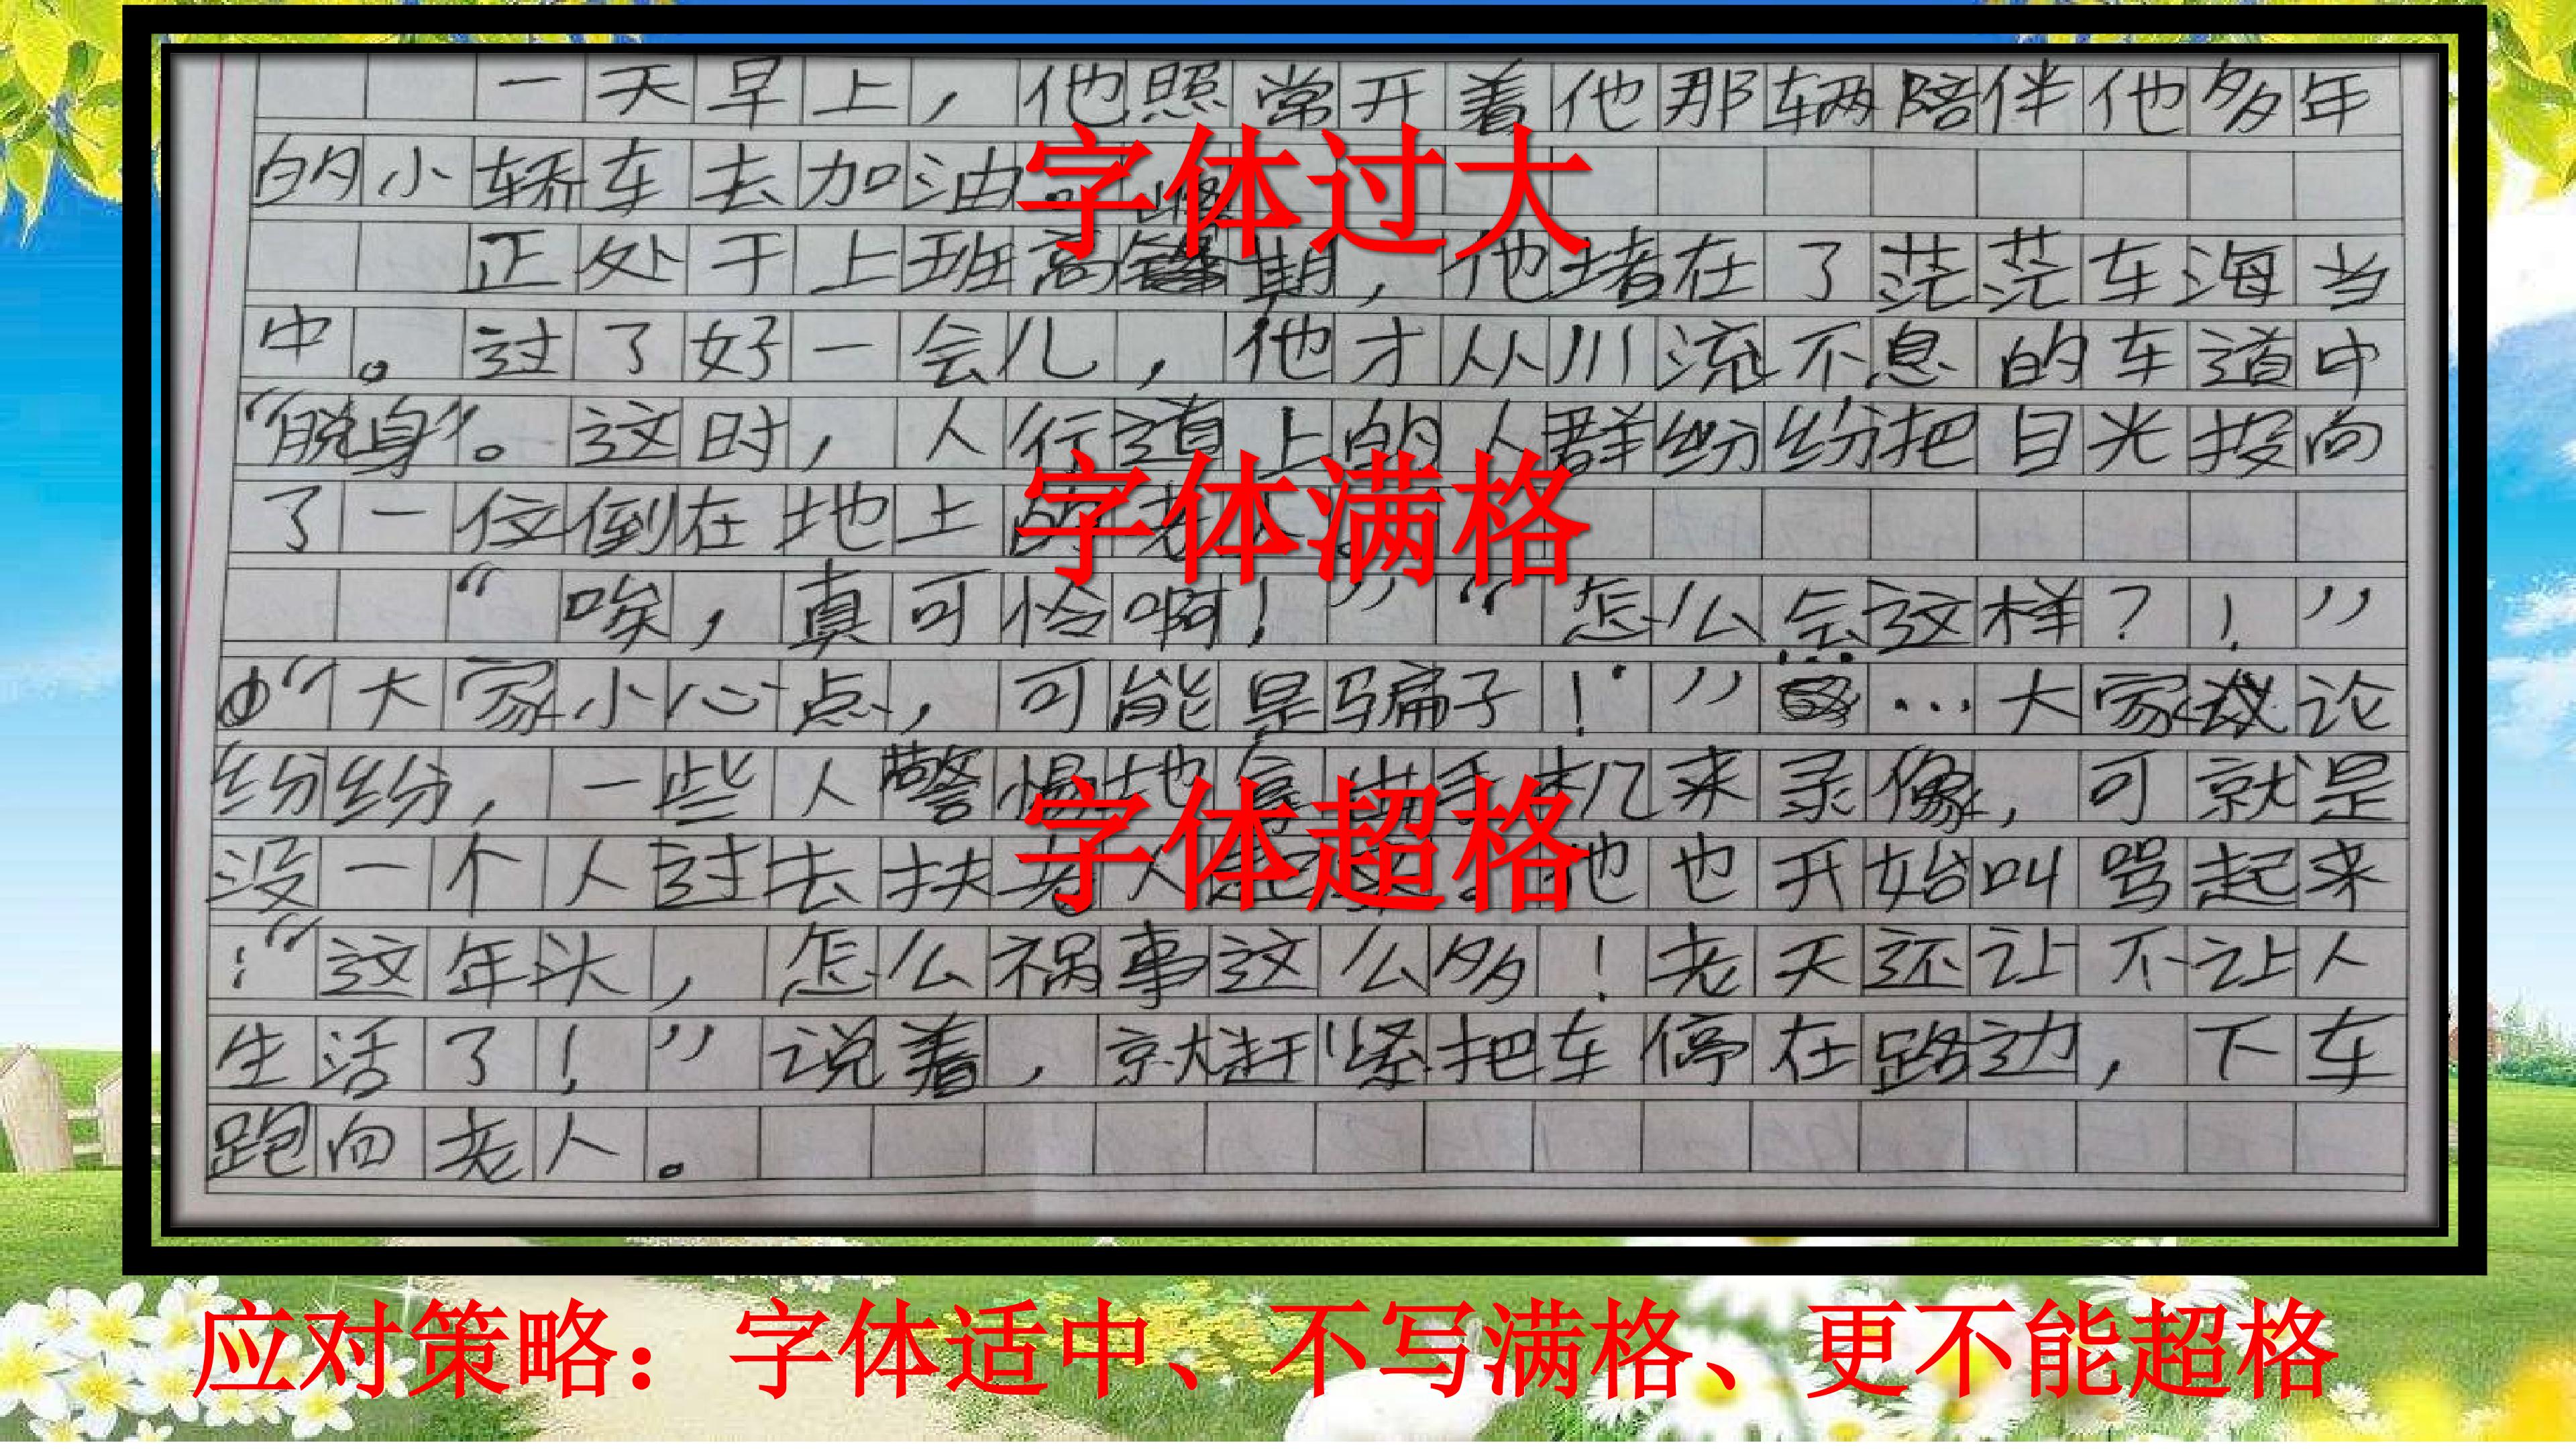 一天早上，他照常开着他那辆陪伴他多年
字体过大
的小轿车去加油。
正处于上班高峰期，他堵在了茫茫车海当
中。过了好一会儿，他才从川流不息的车道中
“脱身”。这时，人行道上的人群纷纷把目光投向
字体满格
了一位倒在地上的老人。
“唉，真可怜啊！”“怎么会这样？！”
“大家小心点，可能是骗子！”……大家议论
纷纷，一些人警惕地拿出手机来录像，可就是
字体超格
没一个人过去扶老人起来。他也开始叫骂起来
：“这年头，怎么祸事这么多！老天还让不让人
生活了！”说着，就赶紧把车停在路边，下车
跑向老人。
应对策略：字体适中、不写满格、更不能超格